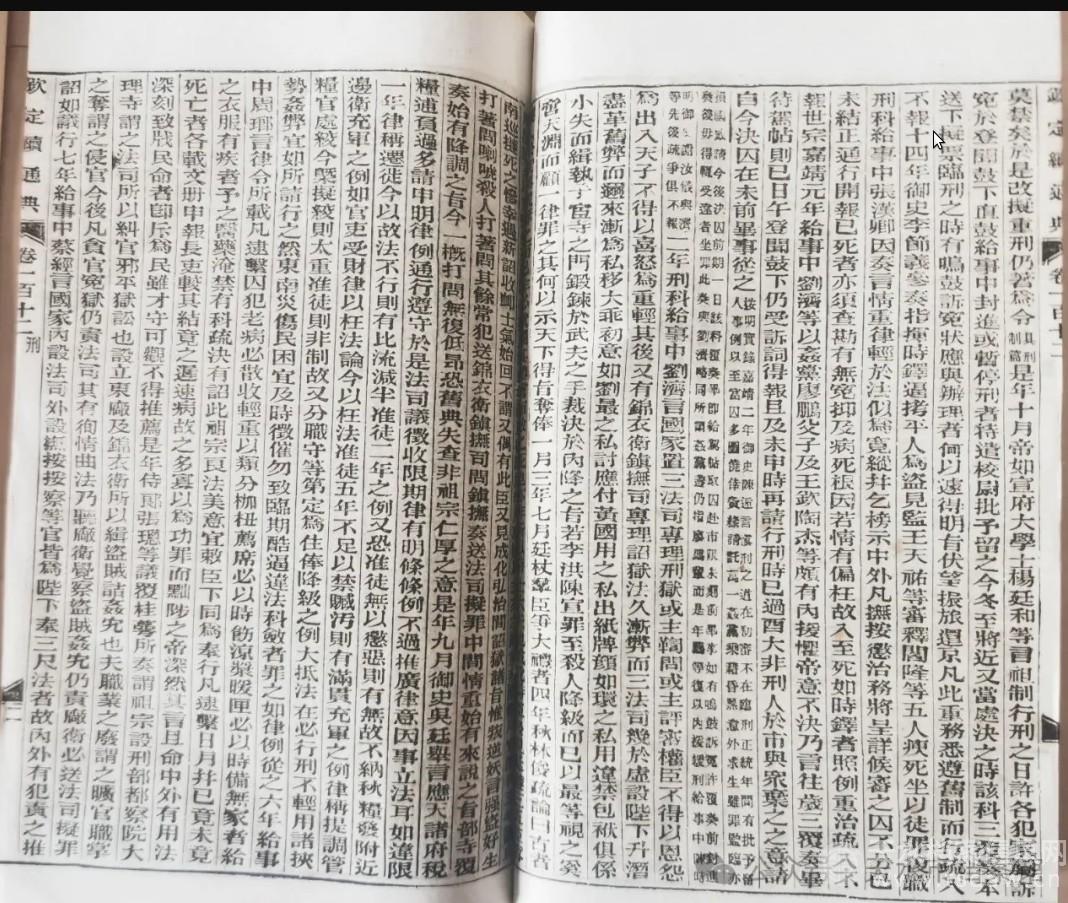 欽定續通典 卷一百十二
莫甚矣於是改擬重刑仍著為令 是年十月帝如宣府大學士楊廷和等言祖制行刑之日許各犯 訴
冤於登聞鼓下直鼓給事中封進或暫停刑者特遣校尉批手留之今冬至將近又當處決之時該科三覆奏本
送下擬票臨刑之時有鳴鼓訴冤狀應與辦理者何以速得明有伏望振旅還京凡此重務悉遵舊制而行疏入
不報十四年御史李節義參奏指揮時鐸逼拷平人為盜見監王天祐等審釋閻隆等五人瘐死坐以徒罪復職
刑科給事中張漢卿因奏言情重律輕於法似為寬縱幷乞榜示中外凡撫按懲治務將呈詳候審之囚不分已
未結正通行開報已死者亦須查勘有無冤抑及病死根因若情有偏枉故入至死如時鐸者照例重治疏入不
報世宗嘉靖元年給事中劉濟等以姦黨廖鵬父子及王欽陶杰等頗有內援懼帝意不決乃言往歲三覆奏畢
待駕帖則已日午登聞鼓下仍受訴詞得報且及未申時再請行刑時已過酉大非刑人於市與眾棄之之意請
自今決囚在未前畢事從之
二年刑科給事中劉濟言國家置三法司專理刑獄或主鞫問或主評審權臣不得以恩怨
為出入天子不得以喜怒為重輕其後又有錦衣衛鎮撫司專理詔獄法久漸弊而三法司幾於虛設陛下升潛
盡革舊弊而邇來漸為私移大乖初意如劉最之私討應付黃國用之私出紙牌顏如環之私用違禁包袱俱係
小失而緝執于宦寺之門鍛鍊於武夫之手裁決於內降之旨若李洪陳宣罪至殺人降級而已以最等視之奚
啻天淵而顧一律罪之其何以示天下得旨奪俸一月三年七月廷杖羣臣爭大禮者四年秋林俊疏論曰古者
南巡撻死之慘幸遇新詔收卹士氣始回不謂又偶有此臣又見成化弘治間詔獄諸旨惟叛逆妖言强盜好生
打著問喇唬殺人打著問其餘常犯送錦衣衛鎮撫司問鎮撫奏送法司擬罪中間情重始有來說之旨部寺覆
奏始有降調之旨今一概打問無復低昂恐舊典失查非祖宗仁厚之意是年九月御史吳廷舉言應天諸府稅
糧逋負過多請申明律例通行遵守於是法司議徵收限期律有明條條例不過推廣律意因事立法耳如違限
一年律稱遷徙今以故法不行則有比流減半准徒二年之例又恐准徒無以懲惡則有無故不納秋糧發附近
邊衛充軍之例如官吏受財律以枉法論今以枉法准徒五年不足以禁贓汚則有滿貫充軍之例律稱提調管
糧官處絞今槩擬絞則太重准徒則非制故又分職守等第定為住俸降級之例大抵法在必行刑不輕用諸挾
勢姦弊宜如所請行之然東南災傷民困宜及時徵催勿致臨期酷逼違法科斂者罪之如律例從之六年給事
中周瑯言律令所載凡逮繫囚犯老病必散收輕重以類分枷杻薦席必以時飭涼漿暖匣必以時備無家者給
之衣服有疾者予之醫藥淹禁有科疏決有詔此祖宗良法美意宜敕臣下同為奉行凡逮繫日月幷已竟未竟
死亡者各載文冊申報長吏較其結竟之遲速病故之多寡以為功罪而黜陟之帝深然其言且命中外有用法
深刻致戕民命者卽斥為民雖才守可觀不得推薦是年侍郞張璁等議覆桂萼所奏謂祖宗設刑部都察院大
理寺謂之法司所以糾官邪平獄訟也設立東廠及錦衣衛所以緝盜賊詰姦宄也夫職業之廢謂之曠官職掌
之奪謂之侵官今後凡貪官冤獄仍責法司其有徇情曲法乃聽廠衛覺察盜賊姦宄仍責廠衛必送法司擬罪
詔如議行七年給事中蔡經言國家內設法司外設撫按按察等官皆為陛下奉三尺法者故內外有犯責之推
欽定續通典 卷一百十二 刑